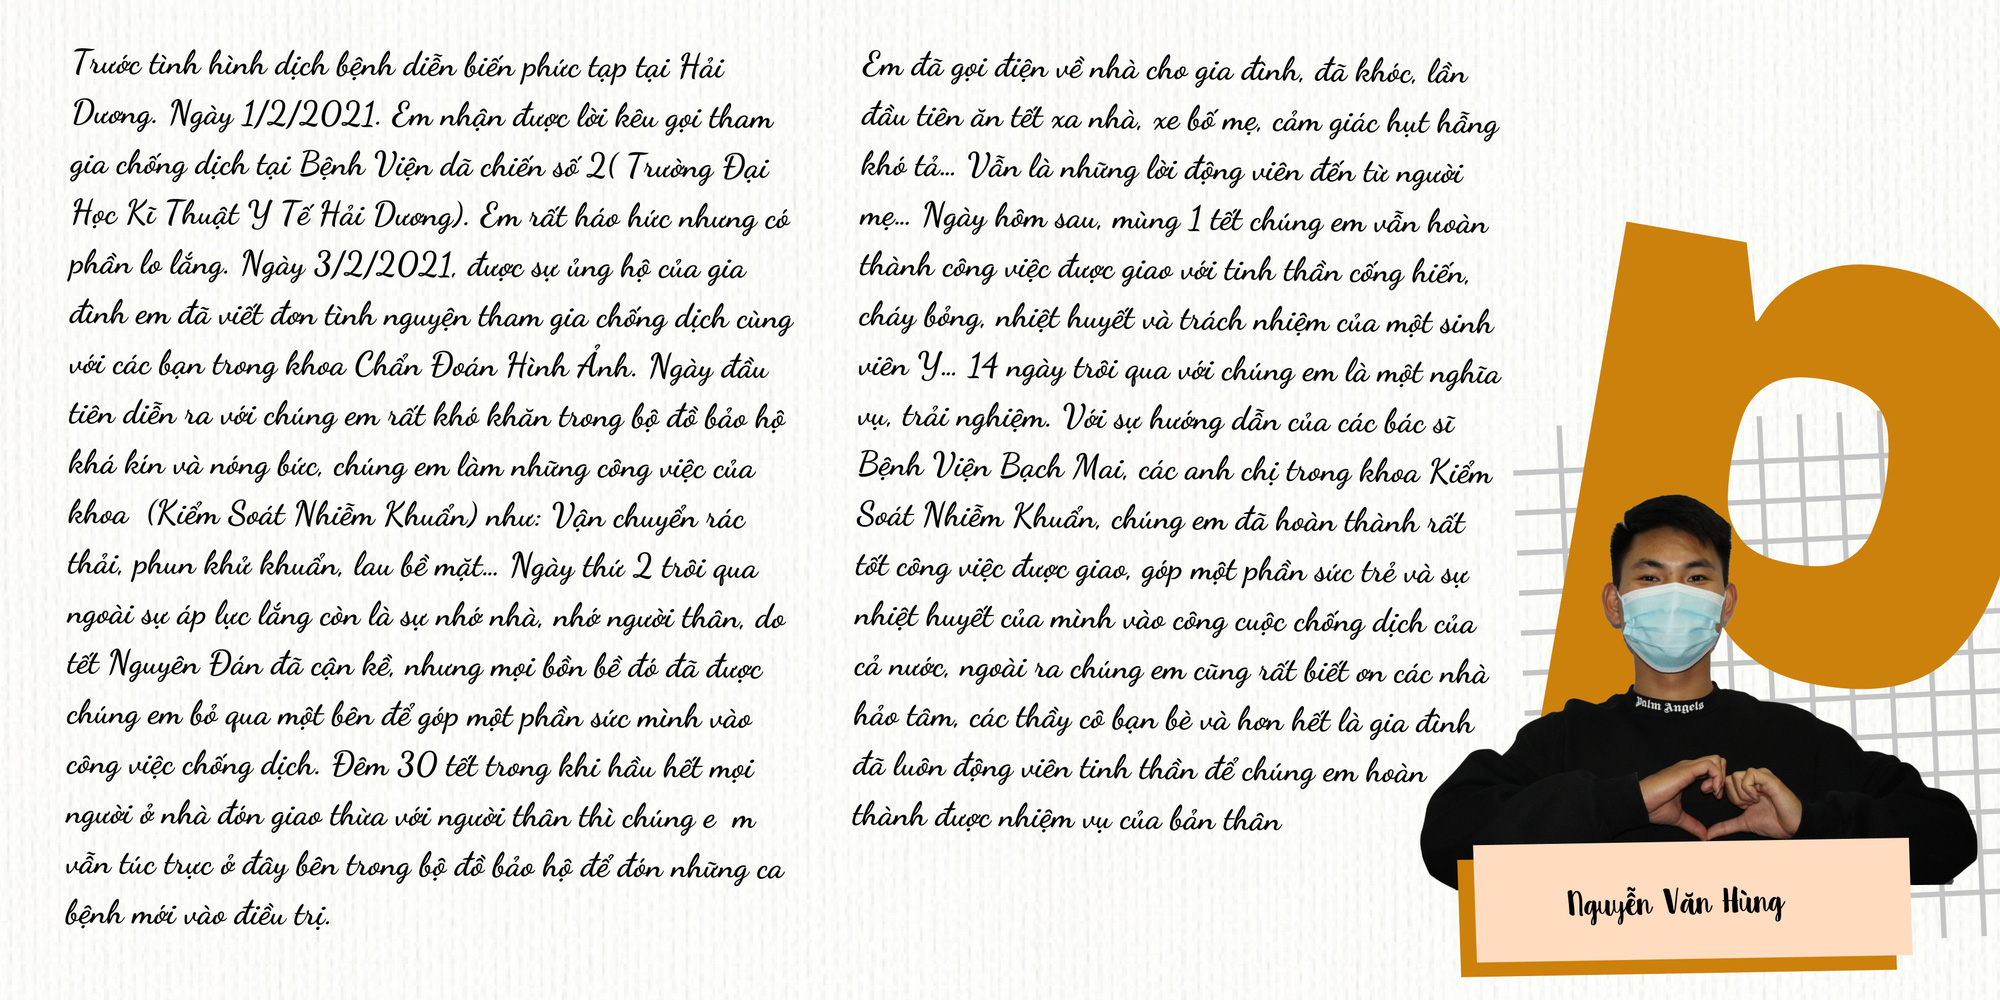 Trước tình hình dịch bệnh diễn biến phức tạp tại Hải
Dương. Ngày 1/2/2021. Em nhận được lời kêu gọi tham
gia chống dịch tại Bệnh Viện dã chiến số 2( Trường Đại
Học Kĩ Thuật Y Tế Hải Dương). Em rất háo hức nhưng có
phần lo lắng. Ngày 3/2/2021, được sự ủng hộ của gia
đình em đã viết đơn tình nguyện tham gia chống dịch cùng
với các bạn trong khoa Chẩn Đoán Hình Ảnh. Ngày đầu
tiên diễn ra với chúng em rất khó khăn trong bộ đồ bảo hộ
khá kín và nóng bức, chúng em làm những công việc của
khoa (Kiểm Soát Nhiễm Khuẩn) như: Vận chuyển rác
thải, phun khử khuẩn, lau bề mặt... Ngày thứ 2 trôi qua
ngoài sự áp lực lắng còn là sự nhớ nhà, nhớ người thân, do
tết Nguyên Đán đã cận kề, nhưng mọi bồn bề đó đã được
chúng em bỏ qua một bên để góp một phần sức mình vào
công việc chống dịch. Đêm 30 tết trong khi hầu hết mọi
người ở nhà đón giao thừa với người thân thì chúng e m
vẫn túc trực ở đây bên trong bộ đồ bảo hộ để đón những ca
bệnh mới vào điều trị.
Em đã gọi điện về nhà cho gia đình, đã khóc, lần
đầu tiên ăn tết xa nhà, xe bố mẹ, cảm giác hụt hẫng
khó tả... Vẫn là những lời động viên đến từ người
mẹ... Ngày hôm sau, mùng 1 tết chúng em vẫn hoàn
thành công việc được giao với tinh thần cống hiến,
cháy bỏng, nhiệt huyết và trách nhiệm của một sinh
viên Y... 14 ngày trôi qua với chúng em là một nghĩa
vụ, trải nghiệm. Với sự hướng dẫn của các bác sĩ
Bệnh Viện Bạch Mai, các anh chị trong khoa Kiểm
Soát Nhiễm Khuẩn, chúng em đã hoàn thành rất
tốt công việc được giao, góp một phần sức trẻ và sự
nhiệt huyết của mình vào công cuộc chống dịch của
cả nước, ngoài ra chúng em cũng rất biết ơn các nhà
hảo tâm, các thầy cô bạn bè và hơn hết là gia đình
đã luôn động viên tinh thần để chúng em hoàn
thành được nhiệm vụ của bản thân
p
Palm Angels
Nguyễn Văn Hùng